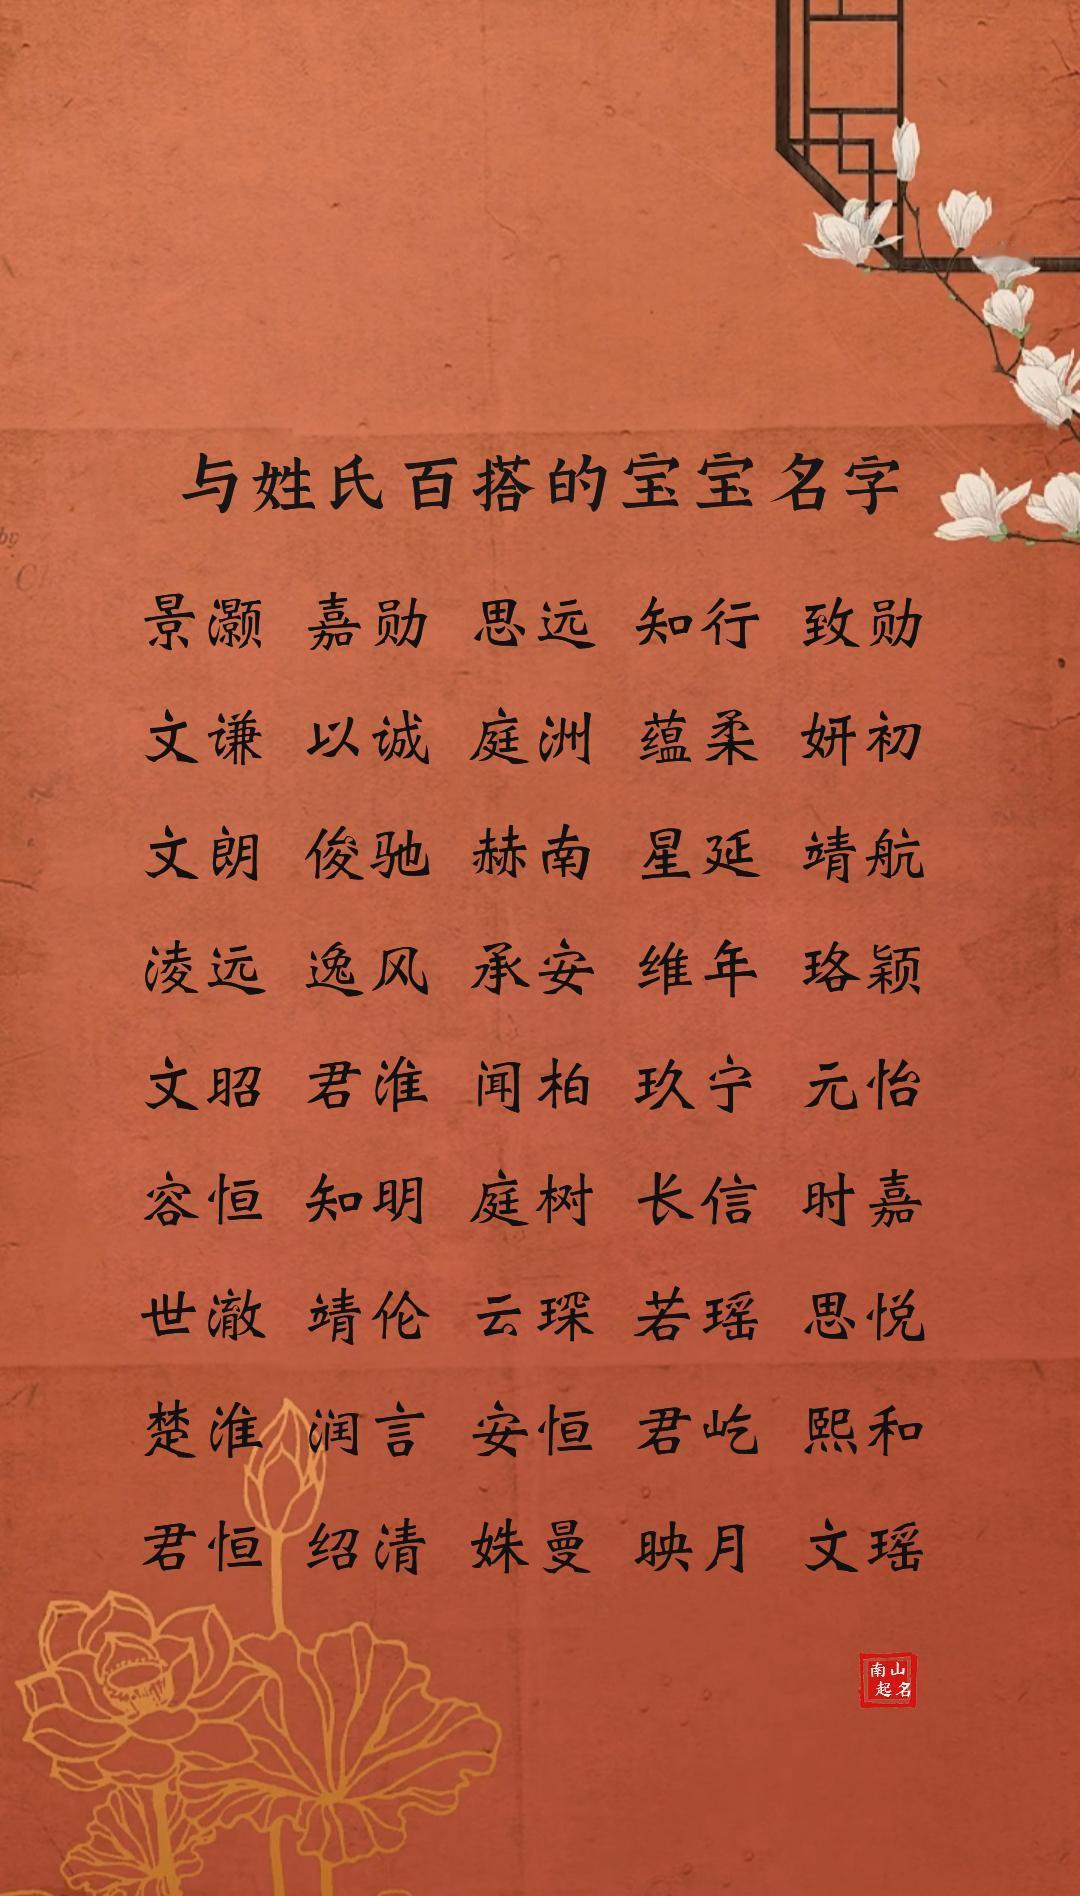 与姓氏百搭的宝宝名字
景灏 嘉勋 思远 知行 致勋
文谦 以诚 庭洲 蕴柔 妍初
文朗 俊驰 赫南 星延 靖航
凌远 逸风 承安 维年 珞颖
文昭 君淮 闻柏 玖宁 元怡
容恒 知明 庭树 长信 时嘉
世澈 靖伦 云琛 若瑶 思悦
楚淮 润言 安恒 君屹 熙和
君恒 绍清 姝曼 映月 文瑶
南山
起名